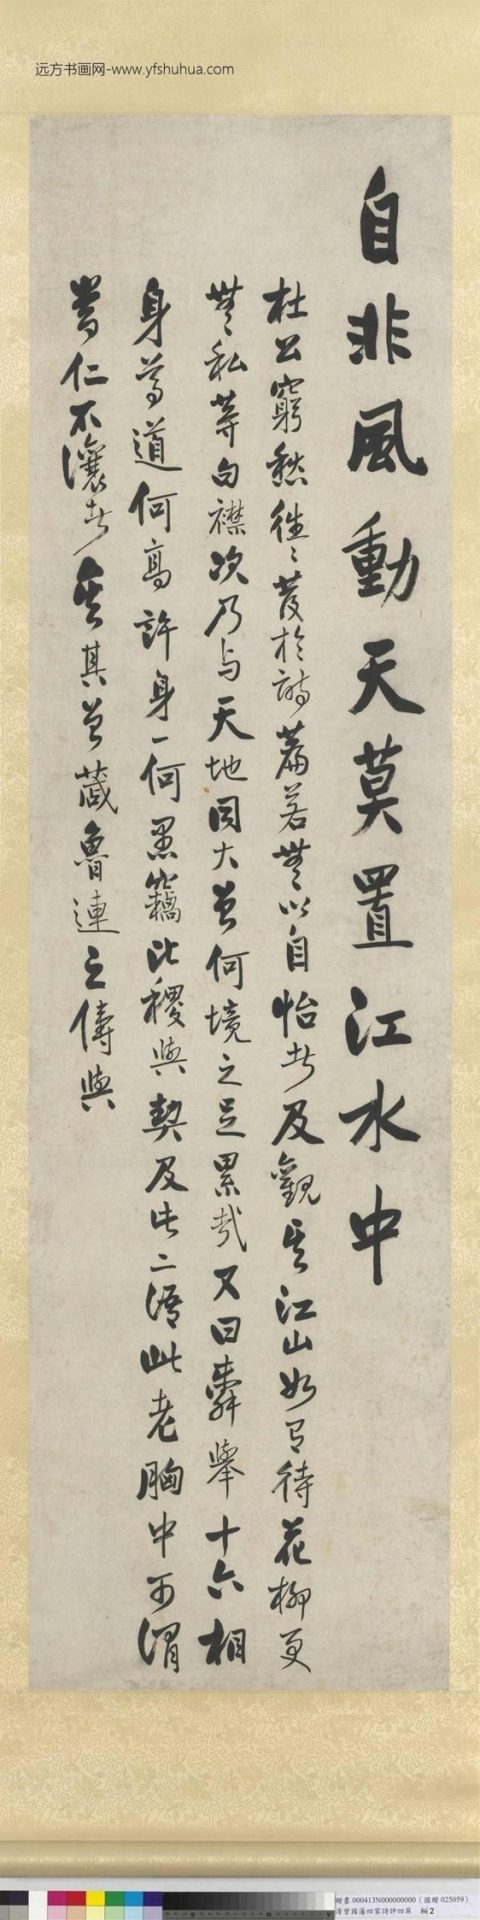 远方书画网-www.yfshuhua.com
自非風動天莫置江水中
杜公窮愁往〻發於詩篇若無以自怡者及觀其江山如有待花柳更
無私等句襟次乃与天地同大曾何境之足累哉又曰舜舉十六相
身尊道何高許身一何愚竊比稷與契及此二語此老胸中可謂
當仁不讓者矣其曾蒧魯連之儔與
贈書 000413N000000000 (國贈 025059)
清曾國藩四家詩評四屏 軸2